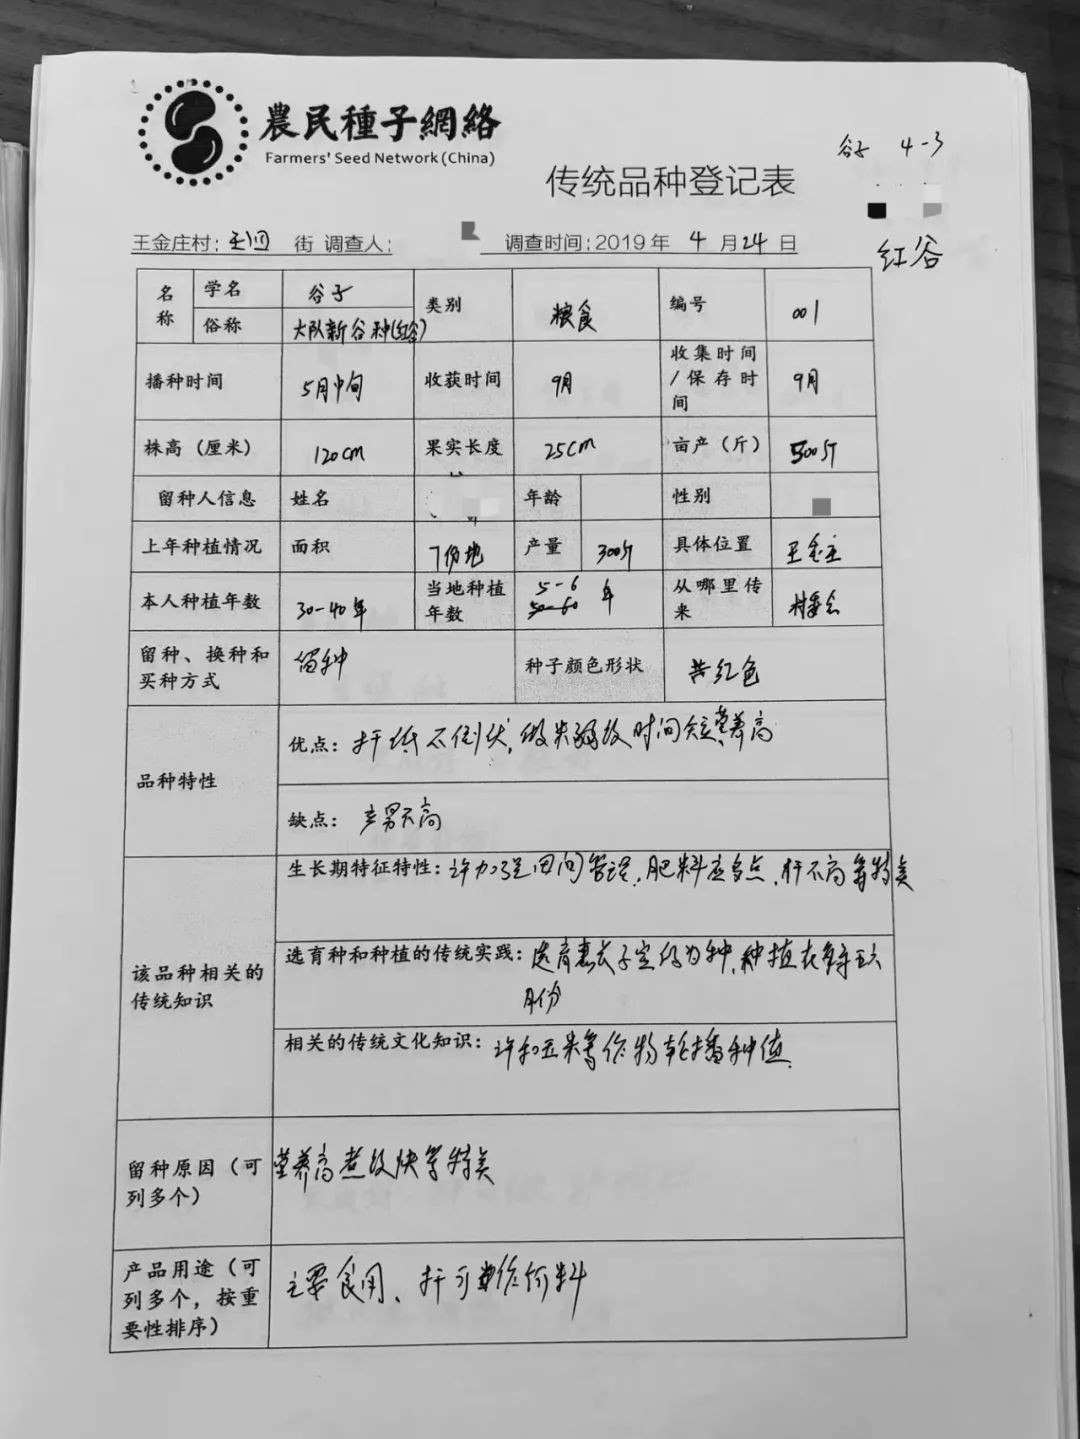 農民種子網絡
Farmers' Seed Network (China)
谷子 4-3
传统品种登记表
红谷
王金庄村： 街 调查人： 调查时间：2019年 4月24日
名称 学名 谷子 类别 粮食 编号 001
俗称 大队新谷种(红谷)
播种时间 5月中旬 收获时间 9月 收集时间/保存时间 9月
株高（厘米） 120cm 果实长度 25cm 亩产（斤） 500斤
留种人信息 姓名 年龄 性别
上年种植情况 面积 7份地 产量 300斤 具体位置 王金庄
本人种植年数 30-40年 当地种植年数 5-6 50-60 年 从哪里传来 村委会
留种、换种和买种方式 留种 种子颜色形状 黄红色
品种特性 优点：杆低不倒伏，做米 时间短 营养高
缺点：产男不高
该品种相关的传统知识 生长期特征特性：许加强田间管理，肥料应多点，杆不高等特类
选育种和种植的传统实践：选育 为种，种植在 五六
月份
相关的传统文化知识：许和玉米等作物轮播种值
留种原因（可列多个） 营养高煮 快等特类
产品用途（可列多个，按重要性排序） 主要食用、杆可 作饲料